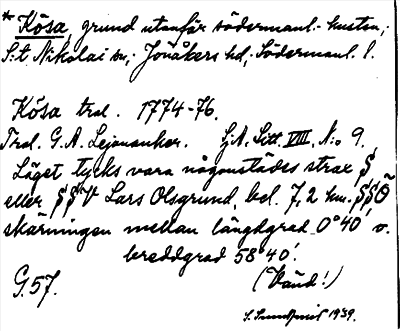 * Kösa, grund utanför södermanl. kusten,
S:t Nikolai sn, Jönåkers hd, Södermanl. l.
Kösa trol. 1774-76.
Trol. G. A. Lejonanker. Sj.A. Litt. VIII, N:o 9.
Läget tycks vara någonstädes strax S
eller SSV Lars Olsgrund, bel. 7,2 km. SSO
skärningen mellan längdgrad 0°40' o.
breddgrad 58°40'.
G. 57. (Vänd!)
1939.